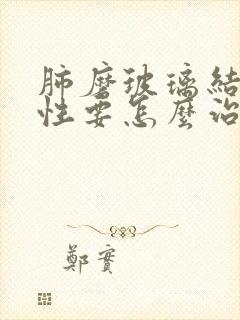 肺磨玻璃結
性要怎麼治
鄭實